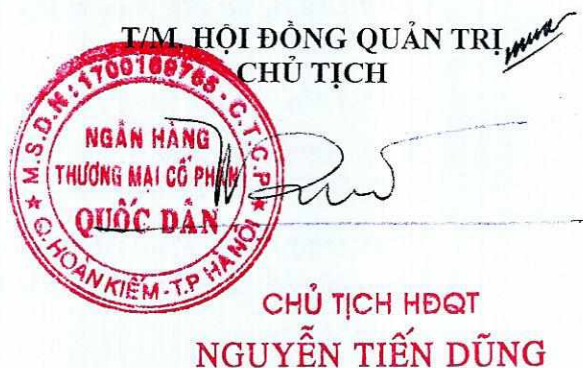 T/M. HỘI ĐỒNG QUẢN TRỊ
CHỦ TỊCH
M.S.D.N: 1700169765 - C.T.C.P
NGÂN HÀNG
THƯƠNG MẠI CỔ PHẦN
QUỐC DÂN
Q. HOÀN KIẾM - T.P HÀ NỘI
CHỦ TỊCH HĐQT
NGUYỄN TIẾN DŨNG